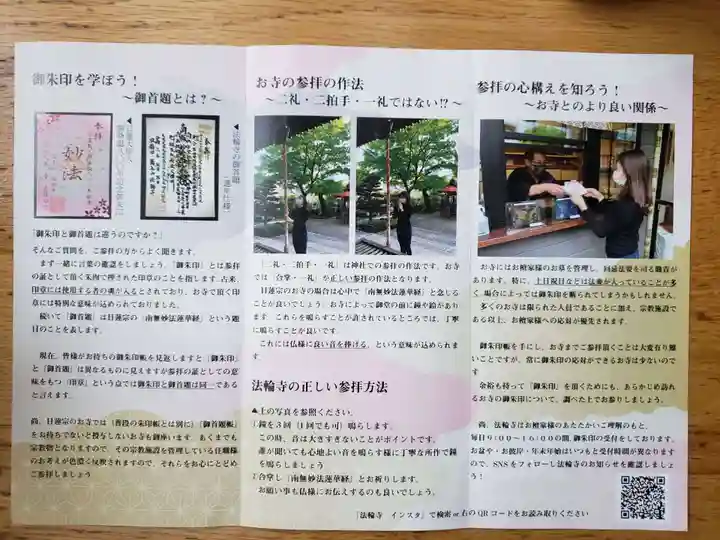 御朱印を学ぼう！
～御首題とは？～
「御朱印と御首題は違うのですか？」
そんなご質問を、ご参拝の方からよく聞きます。
まず一緒に言葉の確認をしましょう。「御朱印」とは参拝
の証として頂く朱肉で押された印章のことを指します。古来、
印章には使用する者の魂が入るとされており、お寺で頂く印
章には特別な意味が込められておりました。
続いて「御首題」は日蓮宗の「南無妙法蓮華経」という題
目のことを表します。
現在、皆様がお持ちの御朱印帳を見返しますと「御朱印」
と「御首題」は異なるものに見えますが参拝の証としての意
味をもつ「印章」という点では御朱印と御首題は同一である
と言えます。
尚、日蓮宗のお寺では（普段の朱印帳とは別に）「御首題帳」
をお持ちでないと授与しないお寺も御座います。あくまでも
宗教物となりますので、その宗教施設を管理している住職様
のお考えが色濃く反映されますので、それらをお心にとどめ
ご参拝しましょう
お寺の参拝の作法
～二礼・二拍手・一礼ではない!?～
「二礼・二拍手・一礼」は神社での参拝の作法です。お寺
では「合掌・一礼」が正しい参拝の作法となります。
日蓮宗のお寺の場合は心中で「南無妙法蓮華経」と念じる
ことが良いでしょう。お寺によって御堂の前に鐘や鈴があり
ます これらを鳴らすことが許されているところでは、丁寧
に鳴らすことが良いです。
これには仏様に良い音を捧げる、という意味が込められま
す。
法輪寺の正しい参拝方法
▲上の写真を参照ください。
①鐘を３回（１回でも可）鳴らします。
この時、音は大きすぎないことがポイントです。
誰が聞いても心地よい音を鳴らす様に丁寧な所作で鐘
を鳴らしましょう
②合掌し「南無妙法蓮華経」とお祈りします。
お願い事も仏様にお伝えするのも良いでしょう。
参拝の心構えを知ろう！
～お寺とのより良い関係～
お寺にはお檀家様のお墓を管理し、回忌法要を司る職責が
あります。特に、土日祝日などは法要が入っていることが多
く 場合によっては御朱印を断られてしまうかもしれません。
多くのお寺は限られた人員であることに加え、宗教施設で
ある以上、お檀家様への応対が優先されます。
御朱印帳を手にし、お寺までご参拝頂くことは大変有り難
いことですが、常に御朱印の応対ができるお寺は少ないので
す
余裕も持って「御朱印」を頂くためにも、あらかじめ訪れ
るお寺の御朱印について、調べた上でお参りしましょう。
尚、法輪寺はお檀家様のあたたかいご理解のもと、
毎日9:00～16:00の間、御朱印の受付をしております。
お盆や・お彼岸・年末年始はいつもと受付時間が異なります
ので、SNSをフォローし法輪寺のお知らせを確認しましょ
う！
「法輪寺 インスタ」で検索or右のQRコードをお読み取りください